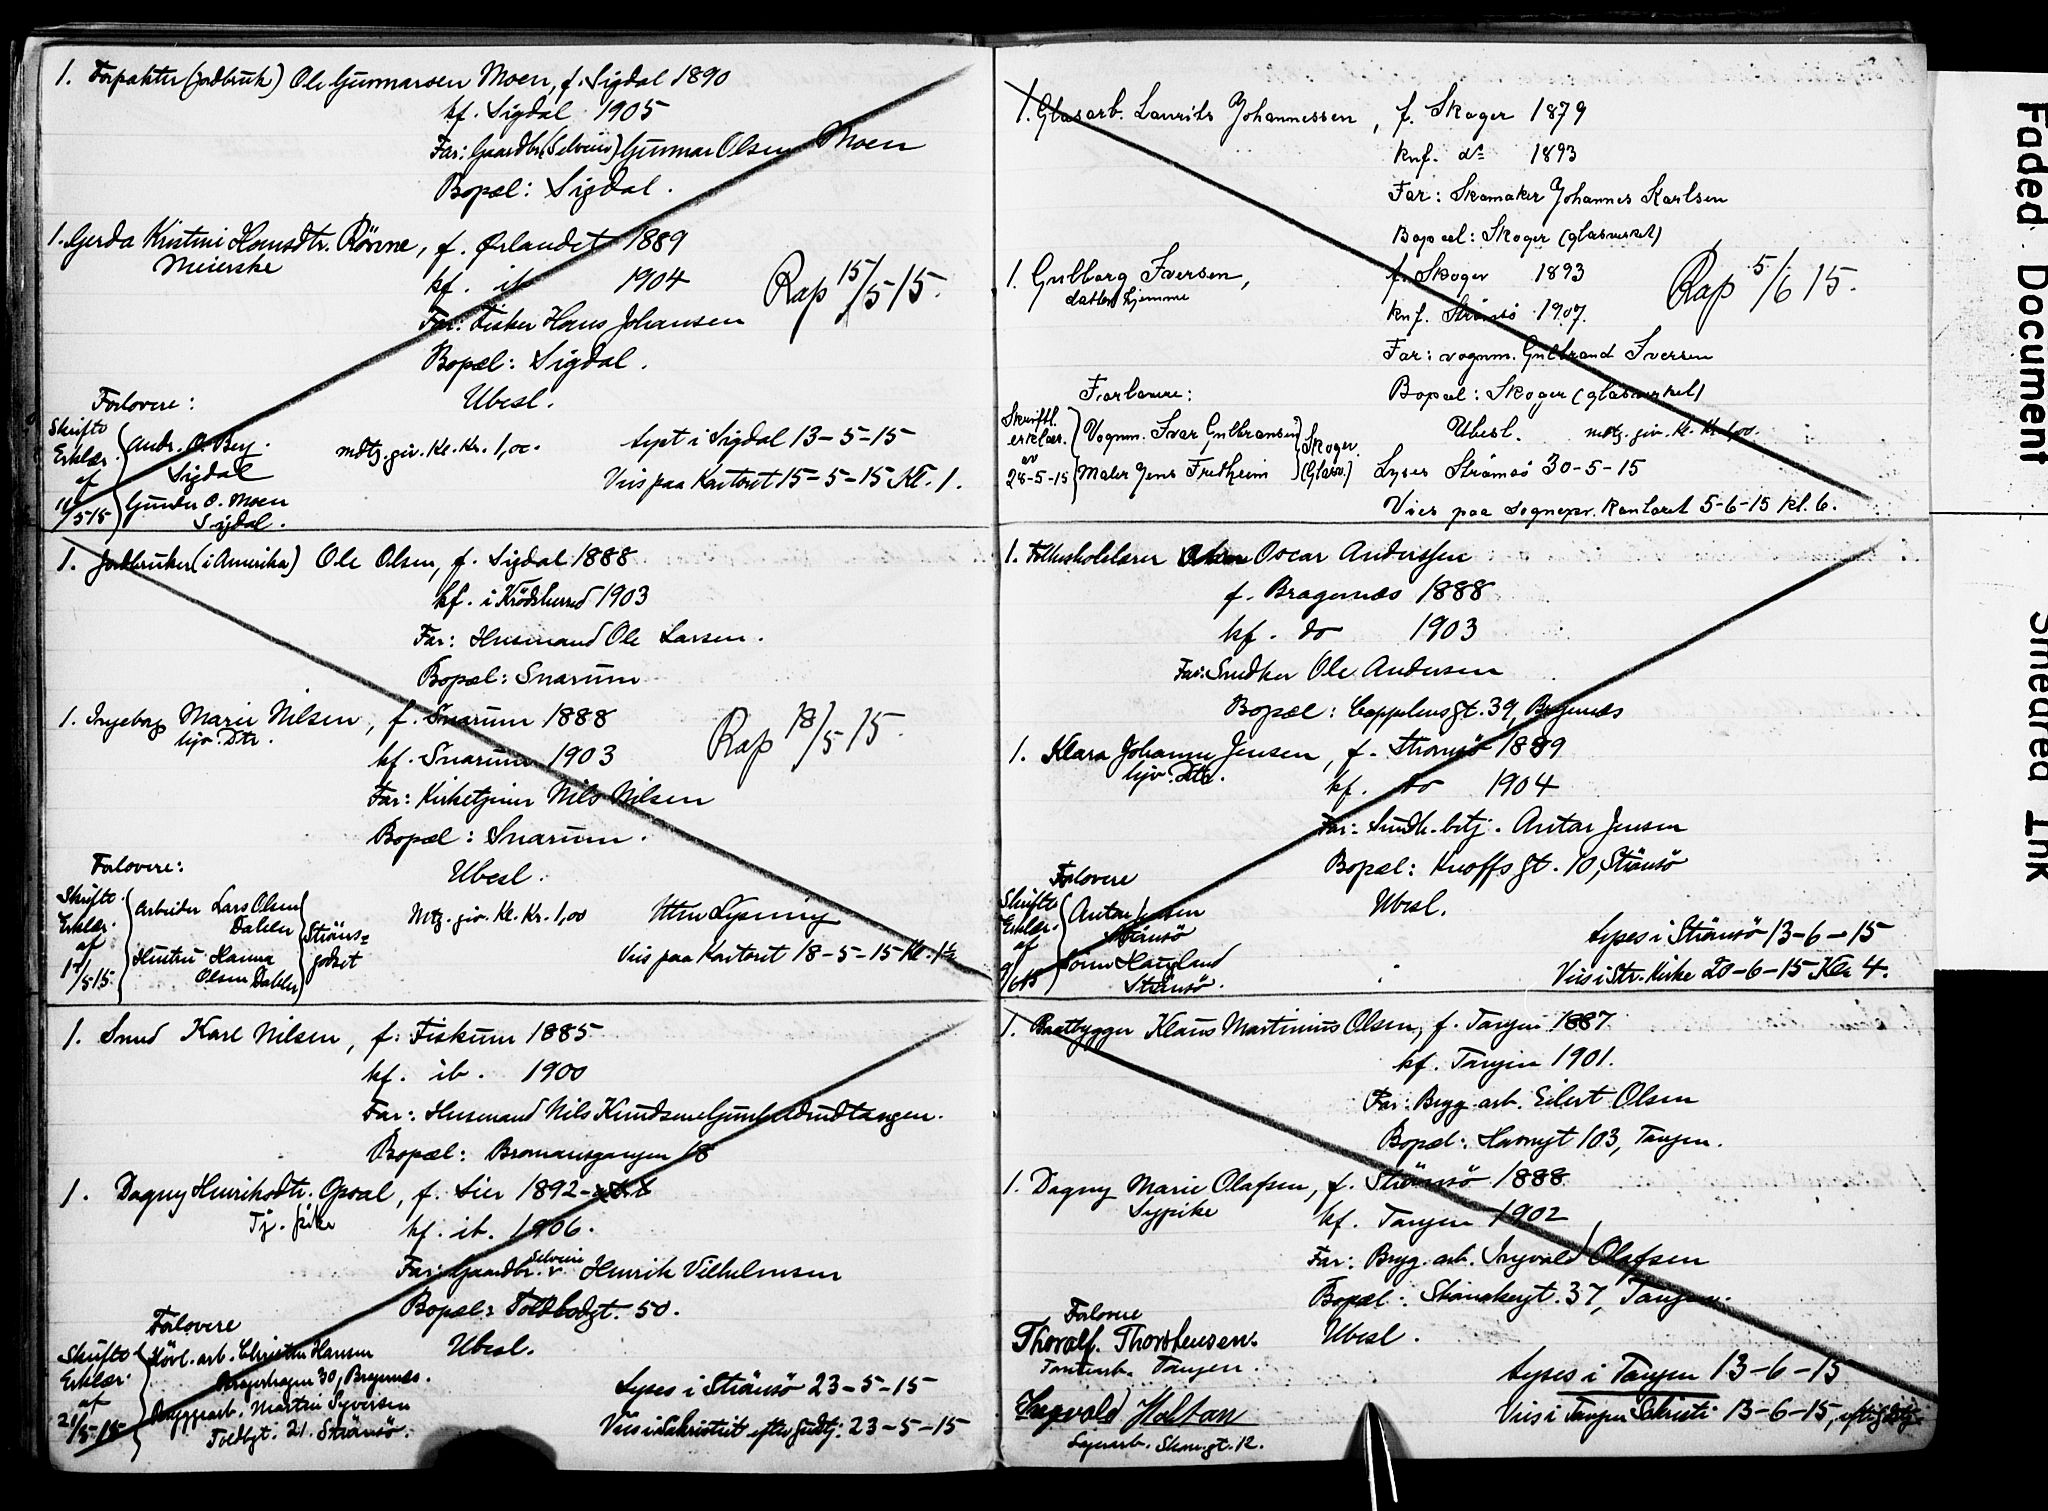 1. Forpakter (jordbruk) Ole Gunnarsen Moen, f. Sigdal 1890
kf. Sigdal 1905
Far: Gaardbr. (Selveier) Gunnar Olsen Moen
Bopæl: Sigdal.
1. Gerda Kristine Hansdtr. Rönne, f. Ørlandet 1889
Meierske
kf. ib 1904
Rap 15/5 15.
Far: Fisker Hans Johansen
Bopæl: Sigdal.
Ubesl.
Forlovere:
Skriftl. Erklær. af 11/5 15
Andr. O. Berg.
Sigdal
Gunder O. Moen
Sigdal.
mdtg. giv. Kl. Kr. 1,00.
Lyst i Sigdal 13-5-15
Vies paa Kontoret 15-5-15 Kl. 1.
1. Jordbruker (i Amerika) Ole Olsen, f. Sigdal 1888
kf. i Krödsherred 1903
Far: Husmand Ole Larsen.
Bopæl: Snarum
1. Ingeborg Marie Nilsen, f. Snarum 1888
hjv. Dtr.
Rap 18/5 15.
kf. Snarum 1903
Far: Kirketjener Nils Nilsen
Bopæl: Snarum.
Ubesl.
Forlovere:
Skriftl. Erklær. af 17/5 15.
Arbeider Lars Olsen
Dahler
Hustru Hanna
Olsen Dahler
Ströms=
godset
Mtg. giv. Kl. Kr. 1,00
Uten Lysning
Vies paa Kontoret 18-5-15 Kl. 1½
1. Smed Karl Nilsen, f. Fiskum 1885
kf. ib. 1900
Far: Husmand Nils Knudsen
Bopæl: Bromansgangen 18
1. Dagny Henriksdtr. Opsal, f. Lier 1892
Tj. pike
kf. ib. 1906.
Far: Gaardbr. Selveier Henrik Vilhelmsen
Bopæl: Toldbodgt. 50.
Ubesl.
Forlovere
Skriftl. Erklær. af 21/5-15
Hövl. arb. Christen Hansen
Kragerhagen 30, Bragernæs.
Bryggearb. Martin Syversen
Toldbgt. 21. Strömsö.
Lyses i Strömsö 23-5-15
Vies i Sakristiet efter Gudtj. 23-5-15
1. Glasarb. Laurits Johannessen, f. Skoger 1879
knf. do 1893
Far: Skomaker Johannes Karlsen
Bopæl: Skoger (glasverket)
1. Gulborg Iversen, f. Skoger 1893
datter hjemme
Rap 5/6 15.
knf. Strömsö 1907.
Far: vognm. Gulbrand Iversen
Bopæl: Skoger (glasverket)
Ubesl. mdtg. giv. Kl. Kr. 1,00.
Forlovere:
Skriftl. erklær. av 28-5-15
Vognm. Ivar Gulbransen
Maler Jens Fredheim
Skoger
(Glasv.)
Lyses Strömsö 30-5-15
Vies paa Sognepr. kontoret 5-6-15 kl. 6.
1. Folkeskolelærer Oscar Anderssen
f. Bragernæs 1888
kf. do 1903
Far: Snedker Ole Andersen
Bopæl: Cappelensgt. 39, Bragernæs
1. Klara Johanne Jensen, f. Strömsö 1889
hjv. Dtr.
kf. do 1904
Far: Sundh. betj. Antar Jensen
Bopæl: Knoffsgt. 10, Strömsö
Ubesl.
Forlovere
Skriftl. Erklær. af 9/6 15
Antar Jensen
Strömsö
Haugland
Strömsö.
Lyses i Strömsö 13-6-15
Vies i Str. Kirke 20-6-15 Kl. 4.
1. Baatbygger Klaus Martinius Olsen, f. Tangen 1887
kf. Tangen 1901.
Far: Brygg. arb. Eilert Olsen
Bopæl: Havnegt 103, Tangen.
1. Dagny Marie Olafsen, f. Strömsö 1888
Sypike
kf. Tangen 1902
Far: Brygg. arb. Ingvald Olafsen
Bopæl: Skanskegt. 37, Tangen.
Ubesl.
Forlovere
Thoralf. Thorstensen.
Tomtearb. Tangen.
Ingvald Holtan
Lagerarb. Skansgt. 12.
Lyses i Tangen 13-6-15
Vies i Tangen Sakristi 13-6-15,
Faded Document
Smeared Ink